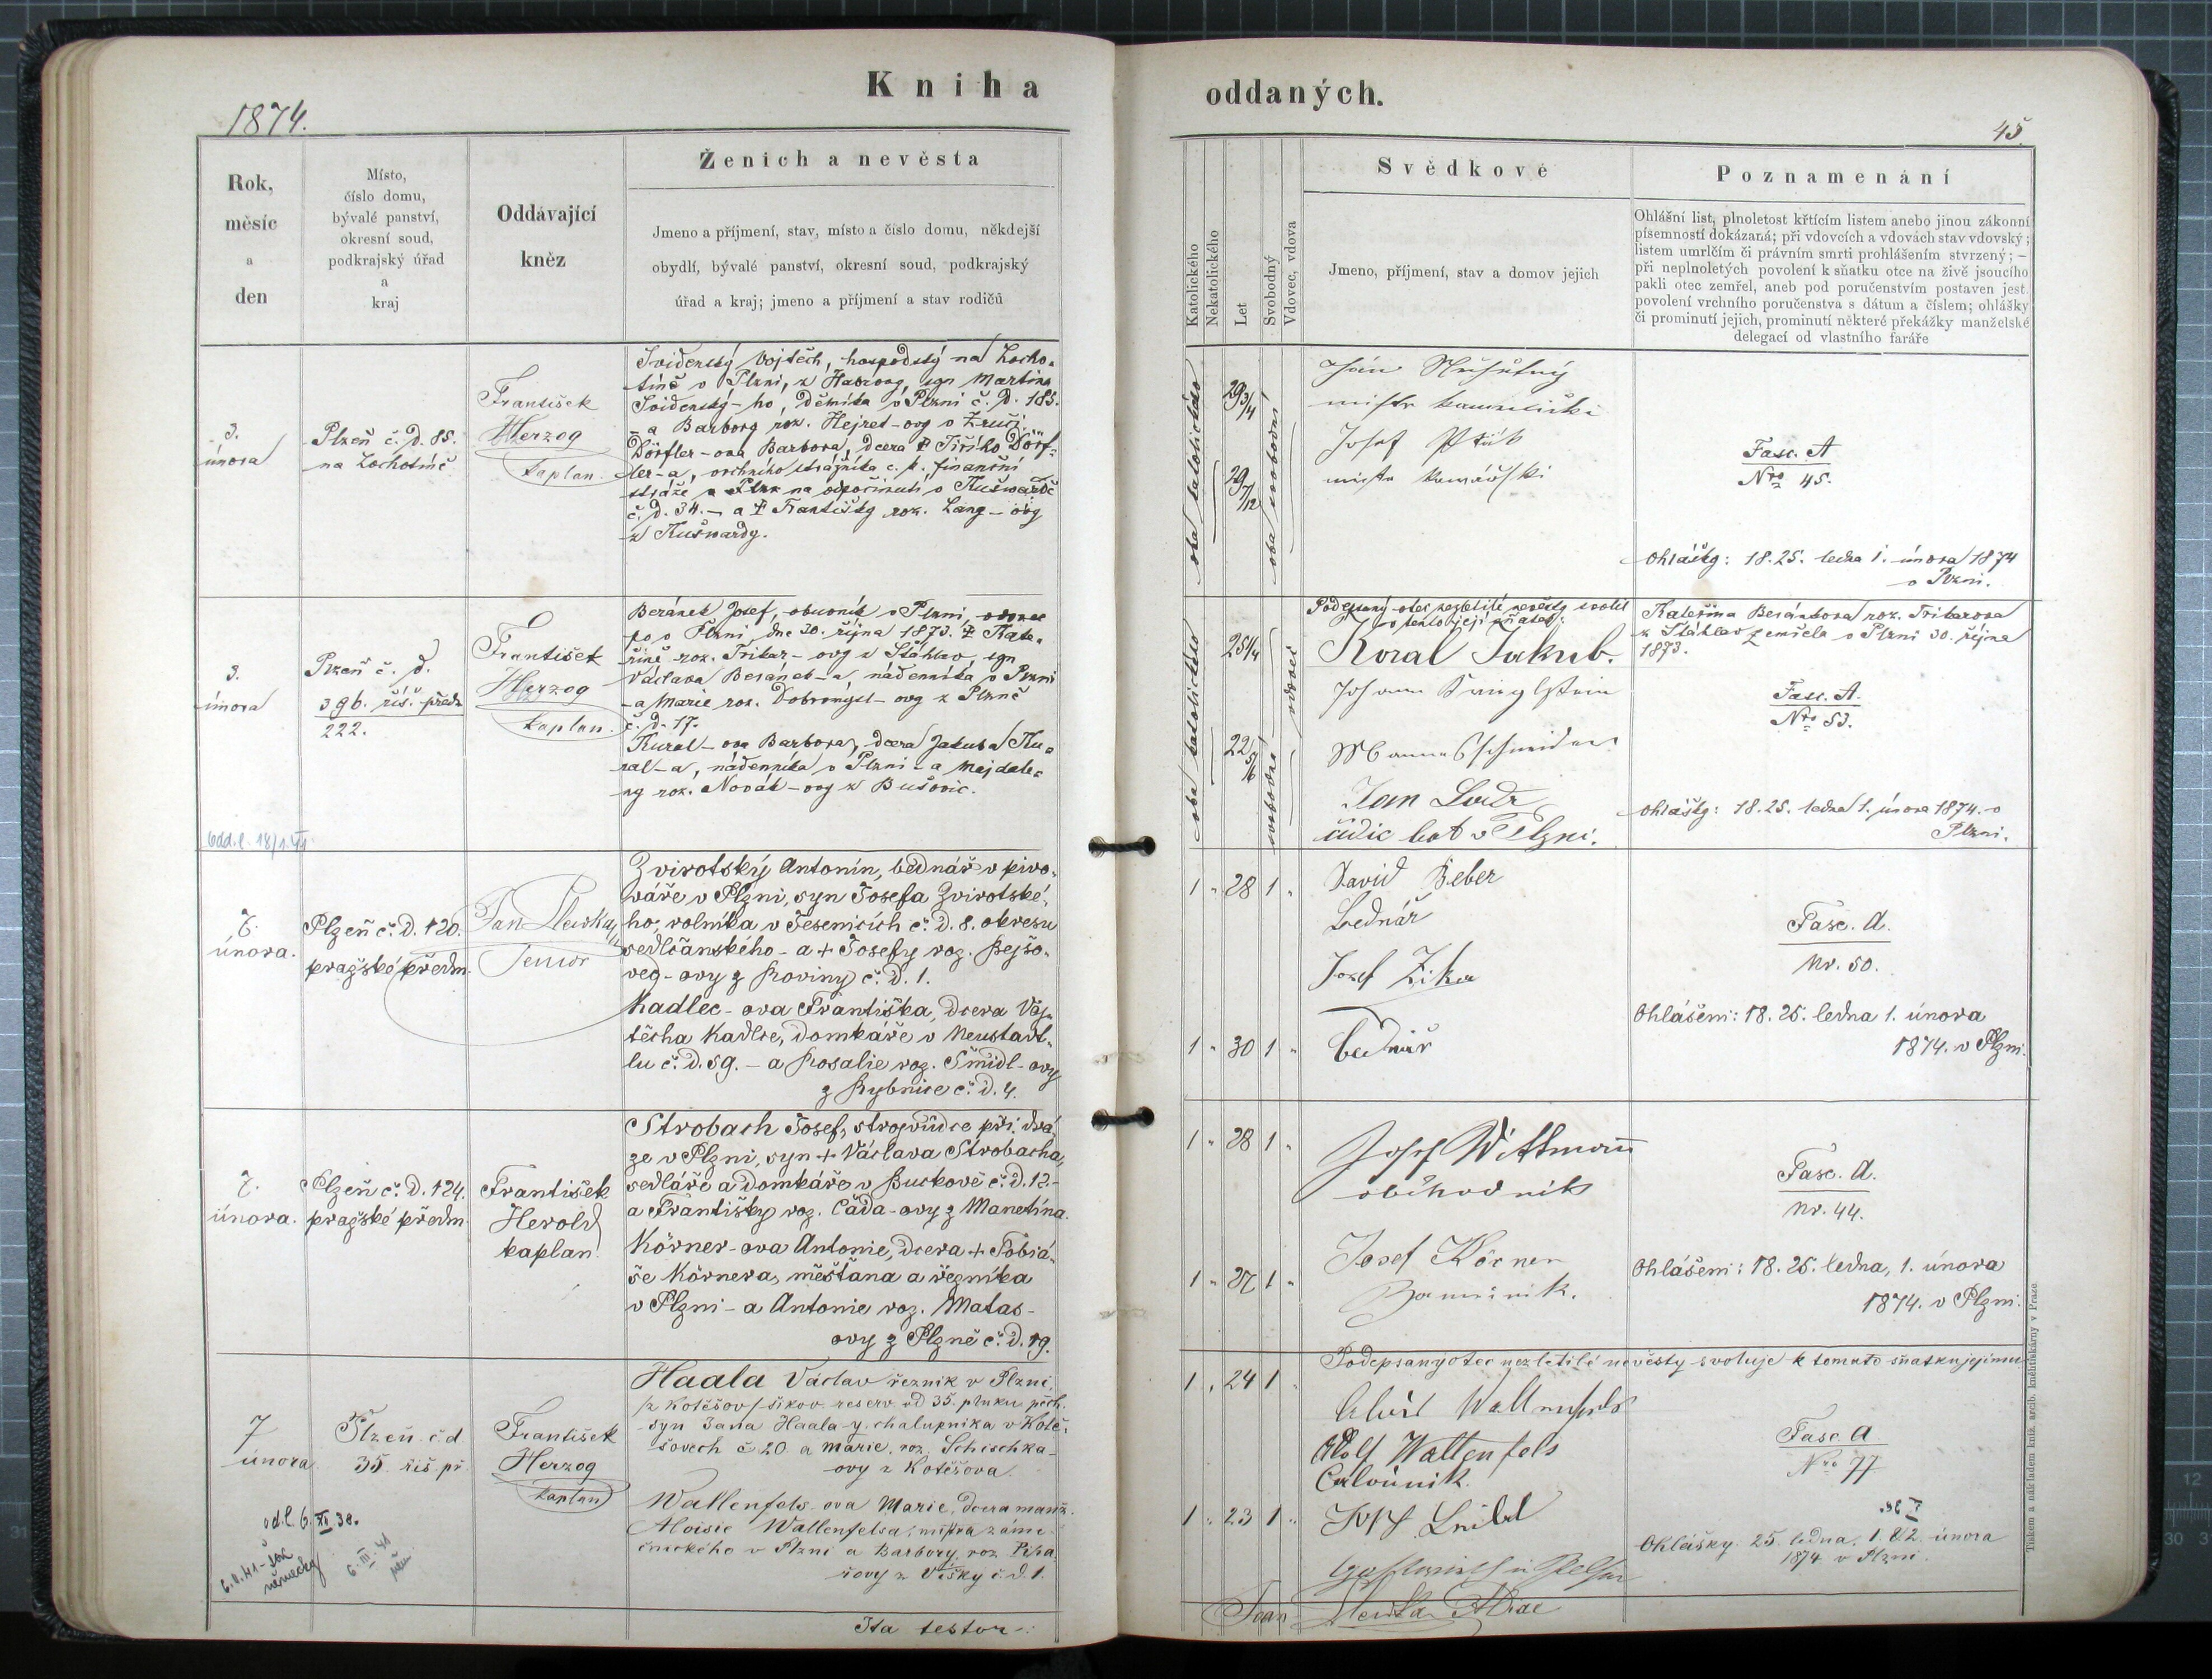 Kniha
oddaných.
1874.
45.
Rok,
měsíc
a
den
Místo,
číslo domu,
bývalé panství,
okresní soud,
podkrajský úřad
a
kraj
Oddávající
kněz
Ženich a nevěsta
Jmeno a příjmení, stav, místo a číslo domu, někdejší
obydlí, bývalé panství, okresní soud, podkrajský
úřad a kraj; jmeno a příjmení a stav rodičů
Katolického
Nekatolického
Let
Svobodný
Vdovec, vdova
Svědkové
Jmeno, příjmení, stav a domov jejich
Poznamenání
Ohlášní list, plnoletost křtícím listem anebo jinou zákonní
písemností dokázaná; při vdovcích a vdovách stav vdovský;
listem umrlčím či právním smrti prohlášením stvrzený; —
při neplnoletých povolení k sňatku otce na živě jsoucího
pakli otec zemřel, aneb pod poručenstvím postaven jest.
povolení vrchního poručenstva s dátum a číslem; ohlášky
či prominutí jejich, prominutí některé překážky manželské
delegací od vlastního faráře
3.
února
Plzeň č. d. 85.
na Lochotíně
František
Herzog
kaplan.
Svidenský Vojtěch, hospodský na Locho-
tíně v Plzni, syn Martina
Svidenský-ho, dělníka v Plzni č. d. 185.
- a Barbory roz. Hejret-ovy
Dörfler-ova Barbora, dcera † Jiřího Dörf-
ler-a, vrchního strážníka c. k. finanční
stráže na odpočinutí v Kušwardě
č. d. 34. - a † Františky roz. Lang-ovy
z Kušwardy.
oba katolického
29 3/4
29 7/12
oba svobodní
Josef
Fasc. A
Nro 45.
Ohlášky: 18. 25. ledna 1. února 1874
v Plzni.
3.
února
Plzeň č. d.
396. říš. předm.
222.
František
Herzog
kaplan.
Beránek Josef, obuvník v Plzni, vdovec
po v Plzni dne 30. října 1873. † Kate-
řině roz. Tribar-ovy z Šťáhlav, syn
Václava Beránek-a, nádenníka v Plzni
- a Marie roz. Dobromysl-ovy z Plzně
č. d. 17.
Kural-ova Barbora, dcera Jakuba Ku-
ral-a, nádenníka v Plzni - a Majdale-
ny roz. Novák-ovy z Bušovic.
oba katolického
25 1/4
22 5/6
vdovec
svobodna
Podepsaný otec nezletilé nevěsty svolil
v tento její sňatek:
Koral Jakub.
Johann
Jan
řidič v Plzni.
Kateřina Beránkova roz. Tribarova
z Šťáhlav zemřela v Plzni 30. října
1873.
Fasc. A.
Nro 53.
Ohlášky: 18. 25. ledna 1. února 1874. v
Plzni.
7.
února.
Plzeň č. d. 120.
pražské předm.
Jan
Zvirotský Antonín, bednář v pivo-
váře v Plzni, syn Josefa Zvirotské-
ho, rolníka v Jesenicích č. d. 8. okresu
sedlčanského - a + Josefy roz. Bejšo-
vec-ovy z Roviny č. d. 1.
Kadlec-ova Františka, dcera Voj-
těcha Kadlce, domkáře v Neustadt-
lu č. d. 59. - a Rosalie roz. Šmidl-ovy
z Rybnice č. d. 4.
1 " 28 1 "
1 " 30 1 "
David Beber
bednář
Josef Zika
bednář
Fasc. A.
Nr. 50.
Ohlášeni: 18. 25. ledna 1. února
1874. v Plzni.
7.
února.
Plzeň č. d. 124.
pražské předm.
František
Herold
kaplan.
Strobach Josef, strojvůdce při drá-
ze v Plzni, syn + Václava Strobacha,
sedláře a domkáře v Buckově č. d. 12 -
a Františky roz. Čada-ovy z Manetína.
Körner-ova Antonie, dcera + Tobiá-
še Körnera, měšťana a řezníka
v Plzni - a Antonie roz. Matas-
ovy z Plzně č. d. 19.
1 " 28 1 "
1 " 27 1 "
Josef Wittmann
obchodník
Josef Körner
Fasc. A.
Nr. 44.
Ohlášeni: 18. 25. ledna, 1. února
1874. v Plzni.
7
února
Plzeň č d
35 říš. př.
František
Herzog
kaplan
Haala Václav řezník v Plzni,
/z Kotěšov/ šikov. reserv. od 35. pluku pěch.
syn Jana Haala-y, chalupníka v Kotě-
šovech č 20 a Marie, roz. Schischka-
ovy z Kotěšova.
Wallenfels-ova Marie, dcera manž.
Aloisie Wallenfelsa, mistra záme-
čnického v Plzni a Barbory, roz.
z Víšky č. d. 1.
1 " 24 1 "
1 " 23 1 "
Podepsaný otec nezletilé nevěsty svoluje k tomuto sňatku jejímu
Alois Wallenfels
Adolf Wallenfels
Čalouník.
Josef
Fasc. A
Nro 77
Ohlášky 25. ledna, 1. & 2. února
1874 v Plzni.
Ita testor:
Tiskem a nákladem kníž. arcib. knihtiskárny v Praze